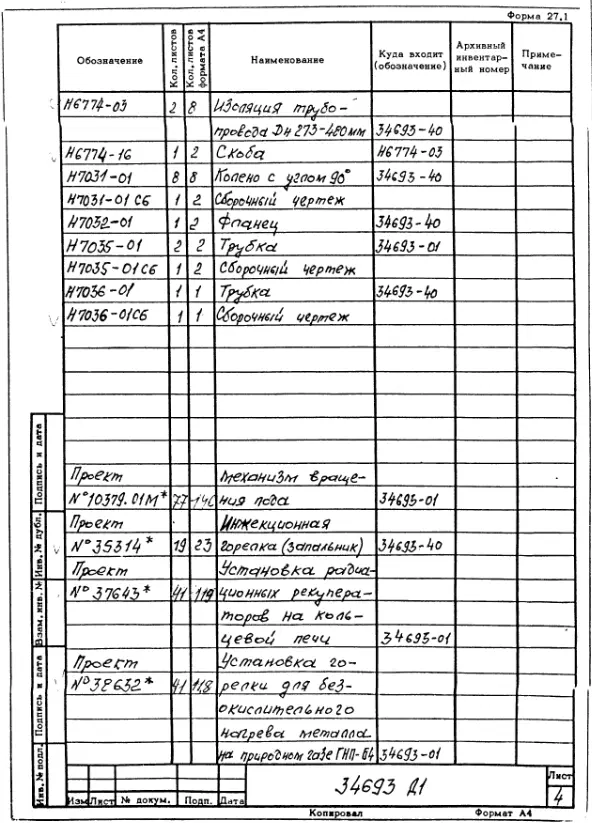 Форма 27.1
Обозначение Кол. листов Кол. листов формата А4 Наименование Куда входит (обозначение) Архивный инвентарный номер Примечание
Н6774-03 2 8 Изоляция трубо-
провода Dн 273-480мм 34693-40
Н6774-16 1 2 Скоба Н6774-03
Н7031-01 8 8 Колено с углом 90° 34693-40
Н7031-01 СБ 1 2 Сборочный чертеж
Н7032-01 1 2 Фланец 34693-40
Н7035-01 2 2 Трубка 34693-01
Н7035-01СБ 1 2 Сборочный чертеж
Н7036-01 1 1 Трубка 34693-40
Н7036-01СБ 1 1 Сборочный чертеж
Проект Механизм враще-
N°10379.01М* 77 ния пода 34693-01
Проект Инжекционная
N°35314* 19 23 горелка (запальник) 34693-40
Проект Установка радиа-
N°37643* 41 119 ционных рекупера-
торов на коль-
цевой печи 34693-01
Проект Установка го-
N°38632* 41 118 релки для без-
окислительного
нагрева металла
на природном газе ГНП-64 34693-01
Инв.№ подл. Подпись и дата Взам. инв. № Инв. № дубл. Подпись и дата
Изм Лист № докум. Подп. Дата
34693 Д1
Лист
4
Копировал Формат А4